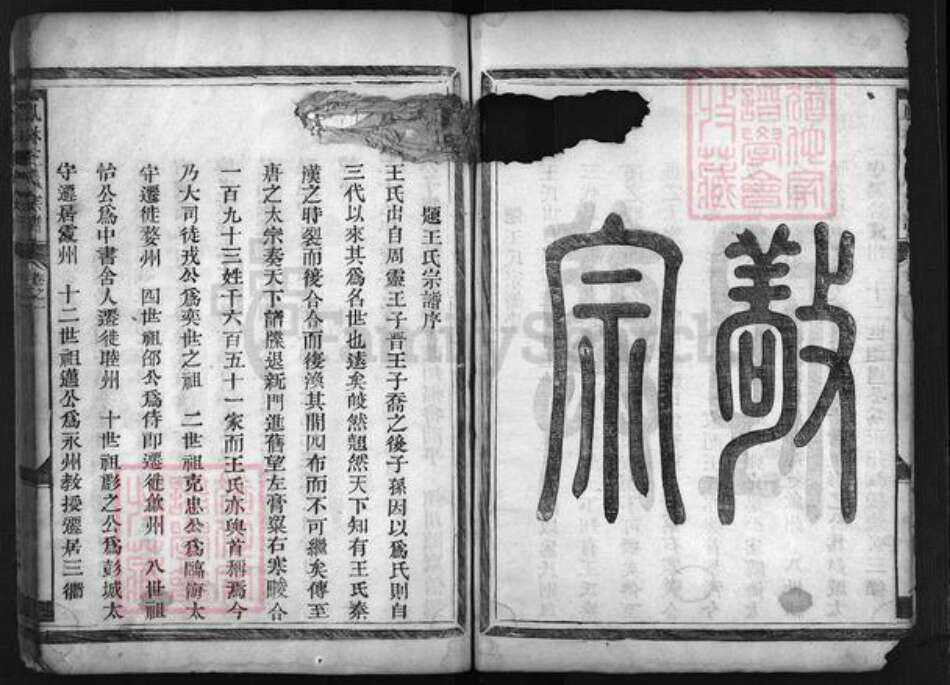 敬宗
題王氏宗譜序
王氏出自周靈王子晋王子喬之後子孫因以爲氏則自
三代以來其爲名世也遠矣皎然翹然天下知有王氏秦
漢之時裂而後合合而後渙其間四布而不可繼矣傳至
唐之太宗奏天下譜牒退新門進舊望左膏粱右寒畯合
一百九十三姓千六百五十一家而王氏亦與首稱焉今
乃大司徒戎公爲奕世之祖 二世祖克忠公爲臨海太
守遷徙婺州 四世祖邵公爲侍郎遷徙歙州 八世祖
怡公爲中書舍人遷徙睦州 十世祖彪之公爲彭城太
守遷居處州 十二世祖邁公爲永州教授遷居三衢
FamilySearch